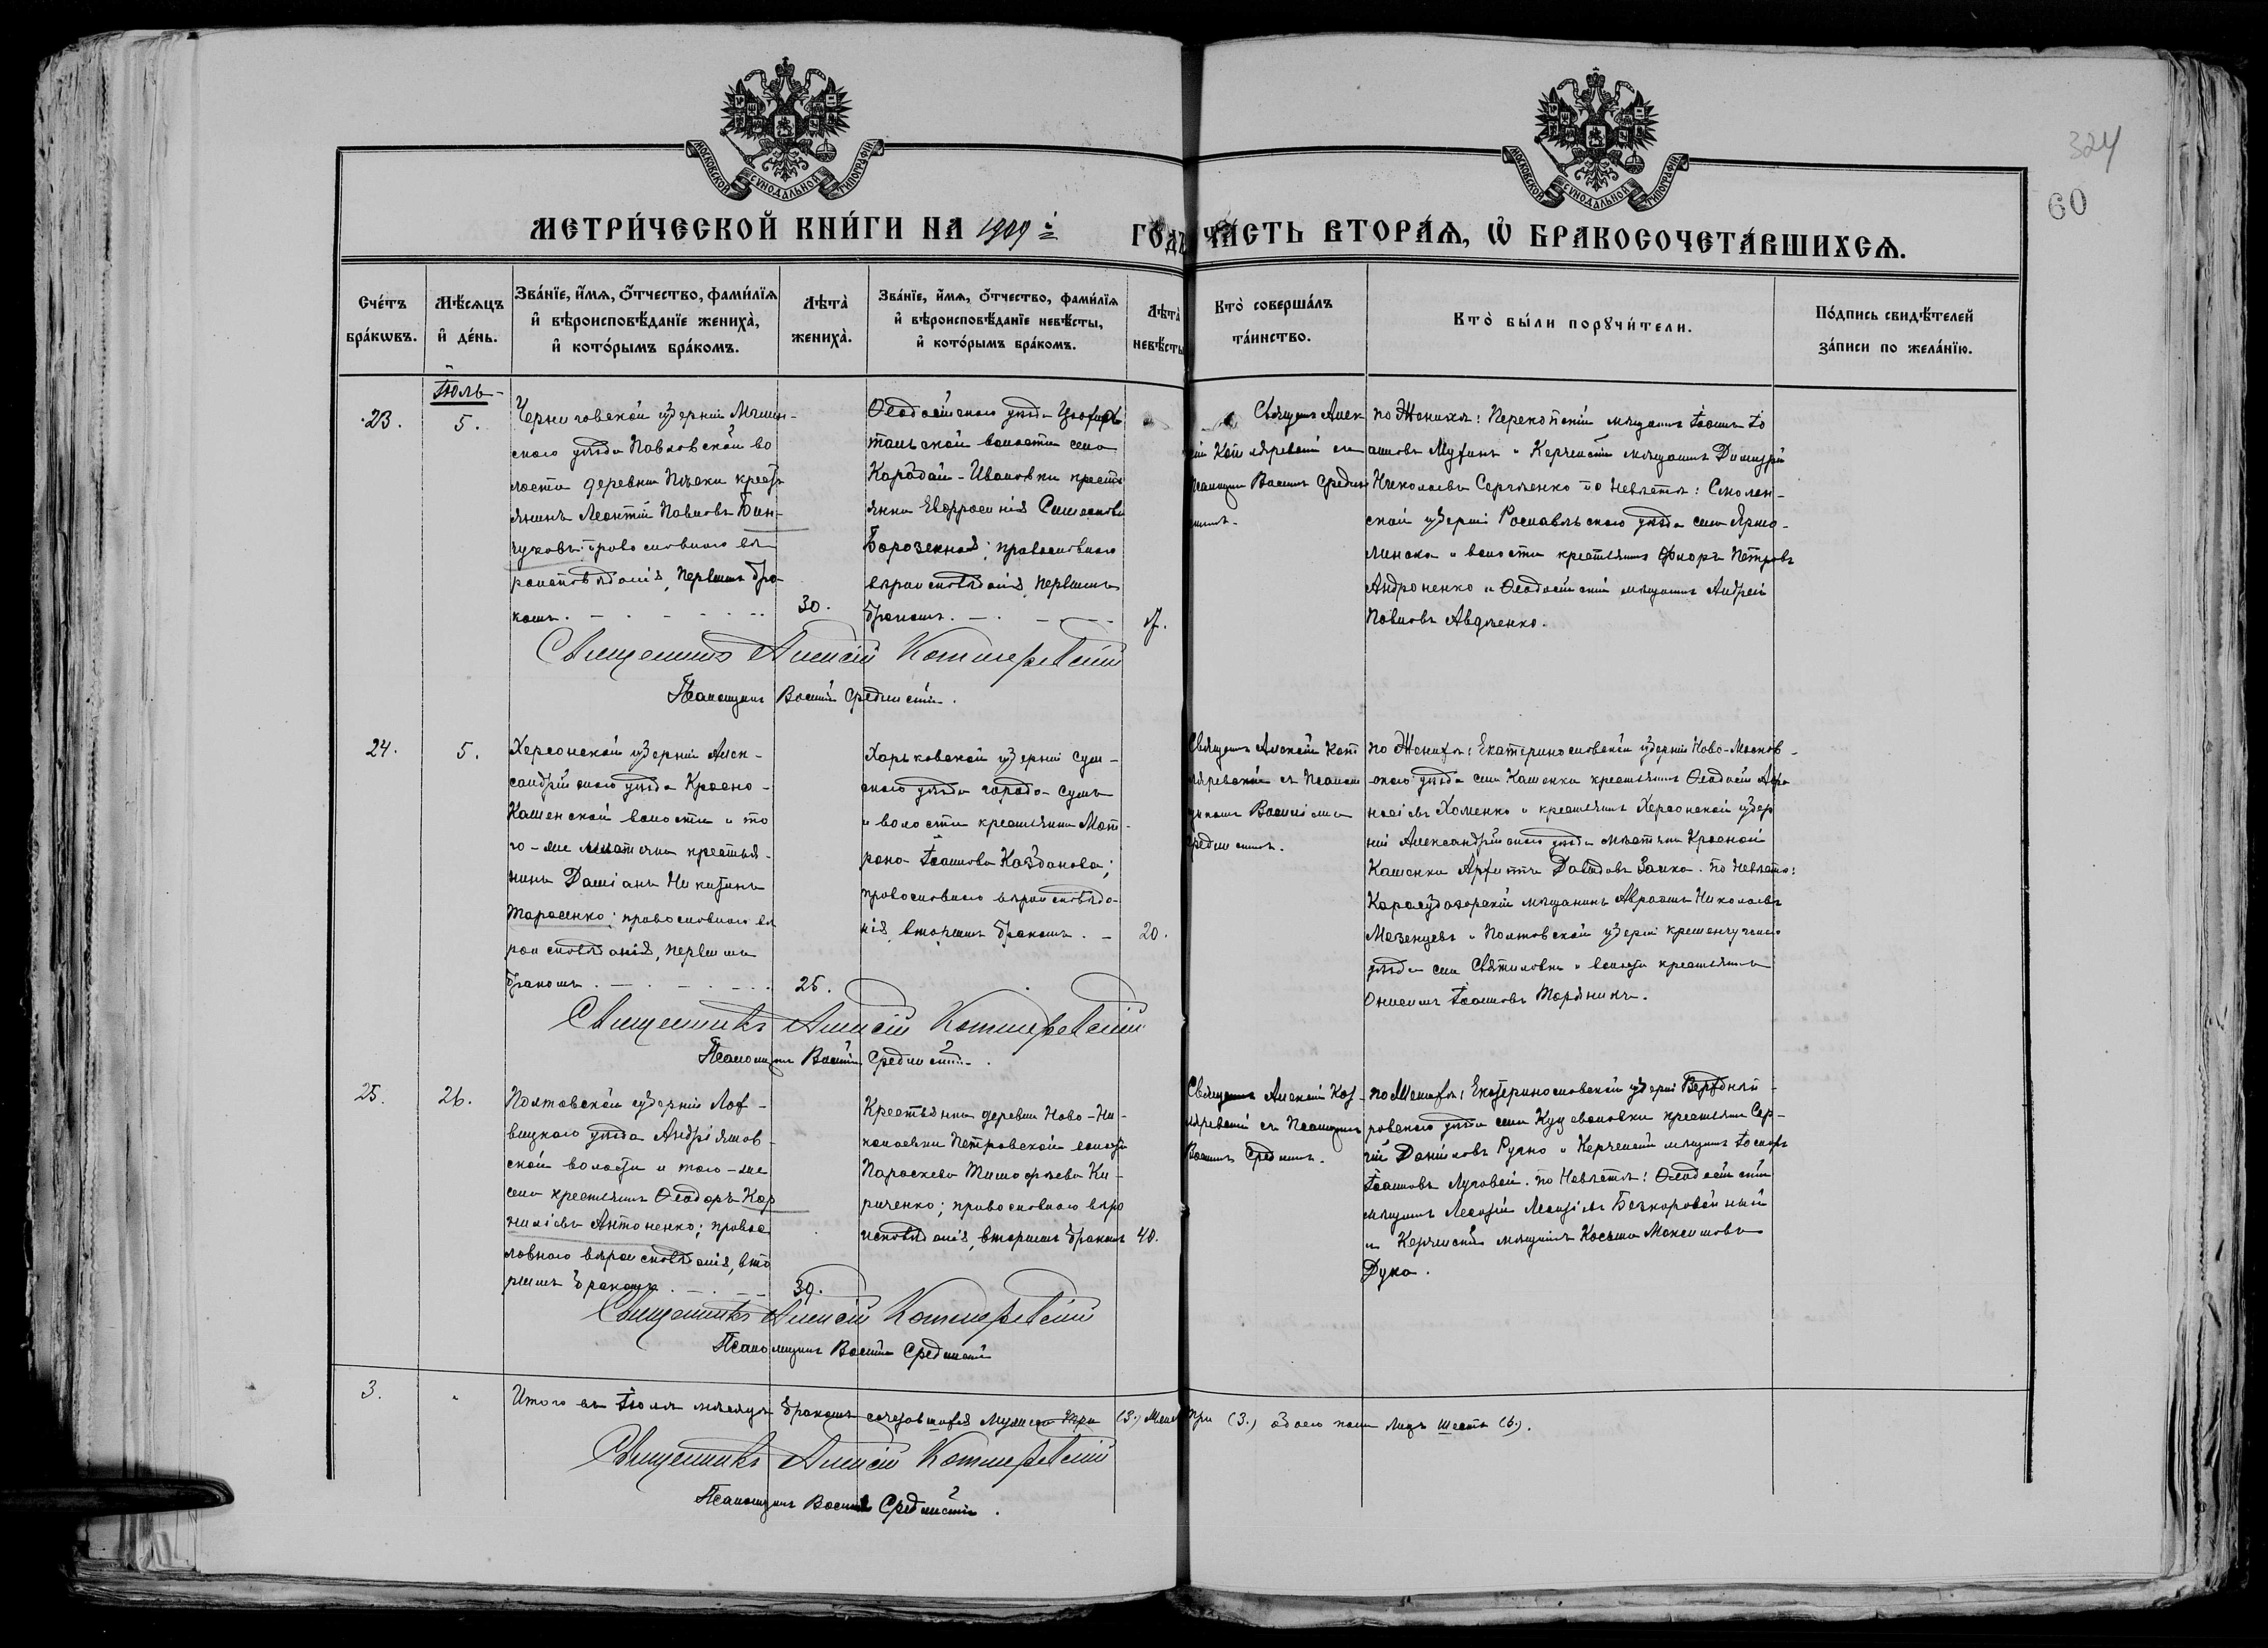 МОСКОВСКОЙ СѴНОДАЛЬНОЙ ТИПОГРАФІИ
МОСКОВСКОЙ СѴНОДАЛЬНОЙ ТИПОГРАФІИ
324
60
МЕТРИ́ЧЕСКОЙ КНИ́ГИ НА 1909 ГОДЪ ЧА́СТЬ ВТОРА́Я, Ѽ БРАКОСОЧЕТА́ВШИХСЯ.
Сче́тъ
бра́кѡвъ.
Мѣ́сяцъ
и҆ де́нь.
Зва́нїе, и҆́мя, о҆́тчество, фами́лїя
и҆ вѣроисповѣ́данїе жениха̀,
и҆ кото́рымъ бра́комъ.
Лѣта̀
жениха̀.
Зва́нїе, и҆́мя, о҆́тчество, фами́лїя
и҆ вѣроисповѣ́данїе невѣ́сты,
и҆ кото́рымъ бра́комъ.
Лѣта̀
невѣ́сты
Кто̀ соверша́лъ
та́инство.
Кто̀ бы́ли порꙋчи́тели.
По́дпись свидѣ́телей
за́писи по жела́нїю.
Іюль
23.
5.
Черниговской губерніи Мглин-
скаго уѣзда Павловской во
лости деревни Пѣски кресть
янинъ Леонтій Павловъ
чуковъ; православнаго вѣ
роисповѣданія, первымъ бра-
комъ.
30.
Ѳеодосійскаго уѣзда
тальской волости села
Карабай-Ивановки кресть
янка Евфросинія Симеонова
Борозенная; православнаго
вѣроисповѣданія, первымъ
бракомъ.
Священ. Алек
сій Котляревскій съ
Псаломщ. Василъ Средин
скимъ.
по Женихѣ: Перекопскій мѣщанинъ Іоаннъ Іо
анновъ Мухинъ и Керченскій мѣщанинъ Димитрій
Николаевъ Сергіенко по Невѣстѣ: Смолен-
ской губерніи Рославльскаго уѣзда села Ермо-
линска и волости крестьянинъ Флоръ Петровъ
Андроненко и Ѳеодосійскій мѣщанинъ Андрей
Павловъ Авдѣенко.
Священникъ Алексій Котляревскій
Псаломщикъ Василій Срединскій.
24.
5.
Херсонской губерніи Алек-
сандрійскаго уѣзда Красно-
Каменской волости и то
го-же мѣстечка крестья-
нинъ Даміанъ Никитинъ
Тарасенко; православнаго вѣ
роисповѣданія, первымъ
бракомъ.
25.
Харьковской губерніи Сум-
скаго уѣзда города Сумъ
и волости крестьянка Мат-
рона Іоаннова Казбанова;
православнаго вѣроисповѣда-
нія, вторымъ бракомъ.
20.
Священ. Алексій Кот
ляревскій съ Псалом
щикомъ Василіемъ
Срединскимъ.
по Женихѣ: Екатеринославской губерніи Ново-Москов-
скаго уѣзда села Каменки крестьянинъ Ѳеодосій Афа
насіевъ Хоменко и крестьянинъ Херсонской губер
ніи Александрійскаго уѣзда мѣстечка Красной
Каменки Архиппъ Давидовъ Заика. по Невѣстѣ:
Карасубазарскій мѣщанинъ Авраамъ Николаевъ
Мезенцевъ и Полтавской губерніи кременчугскаго
уѣзда села Святиловки и волости крестьянинъ
Онисимъ Іоанновъ Тарбникъ.
Священникъ Алексій Котляревскій
Псаломщикъ Василій Срединскій.
25.
26.
Полтавской губерніи Лох-
вицкаго уѣзда Андріяшев-
ской волости и того-же
села крестьянинъ Ѳеодоръ Кор
ниліевъ Антоненко; правос
лавнаго вѣроисповѣданія, вто
рымъ бракомъ.
39.
Крестьянка деревни Ново-Ни-
колаевки Петровской волости
Параскева Тимофѣева Ки-
риченко; православнаго вѣро
исповѣданія, вторымъ бракомъ
40.
Священ. Алексій Кот-
ляревскій съ Псаломщ.
Василъ Средин.
по Женихѣ: Екатеринославской губерніи Верхднѣп-
ровскаго уѣзда села Куцеволовки крестьянинъ Сер-
гій Даниловъ Рудко и Керченскій мѣщанинъ Іосифъ
Іоанновъ Луговой. по Невѣстѣ: Ѳеодосійскій
мѣщанинъ Леонтій Леонтіевъ Безкоровайный
и Керченскій мѣщанинъ Косьма Максимовъ
Дука.
Священникъ Алексій Котляревскій
Псаломщикъ Василій Срединскій
3.
Итого въ Іюлѣ мѣсяцѣ бракомъ сочетавшихся мужеска три (3.) Женск три (3.) обоего пола лицъ шесть (6.).
Священникъ Алексій Котляревскій
Псаломщикъ Василій Срединскій.